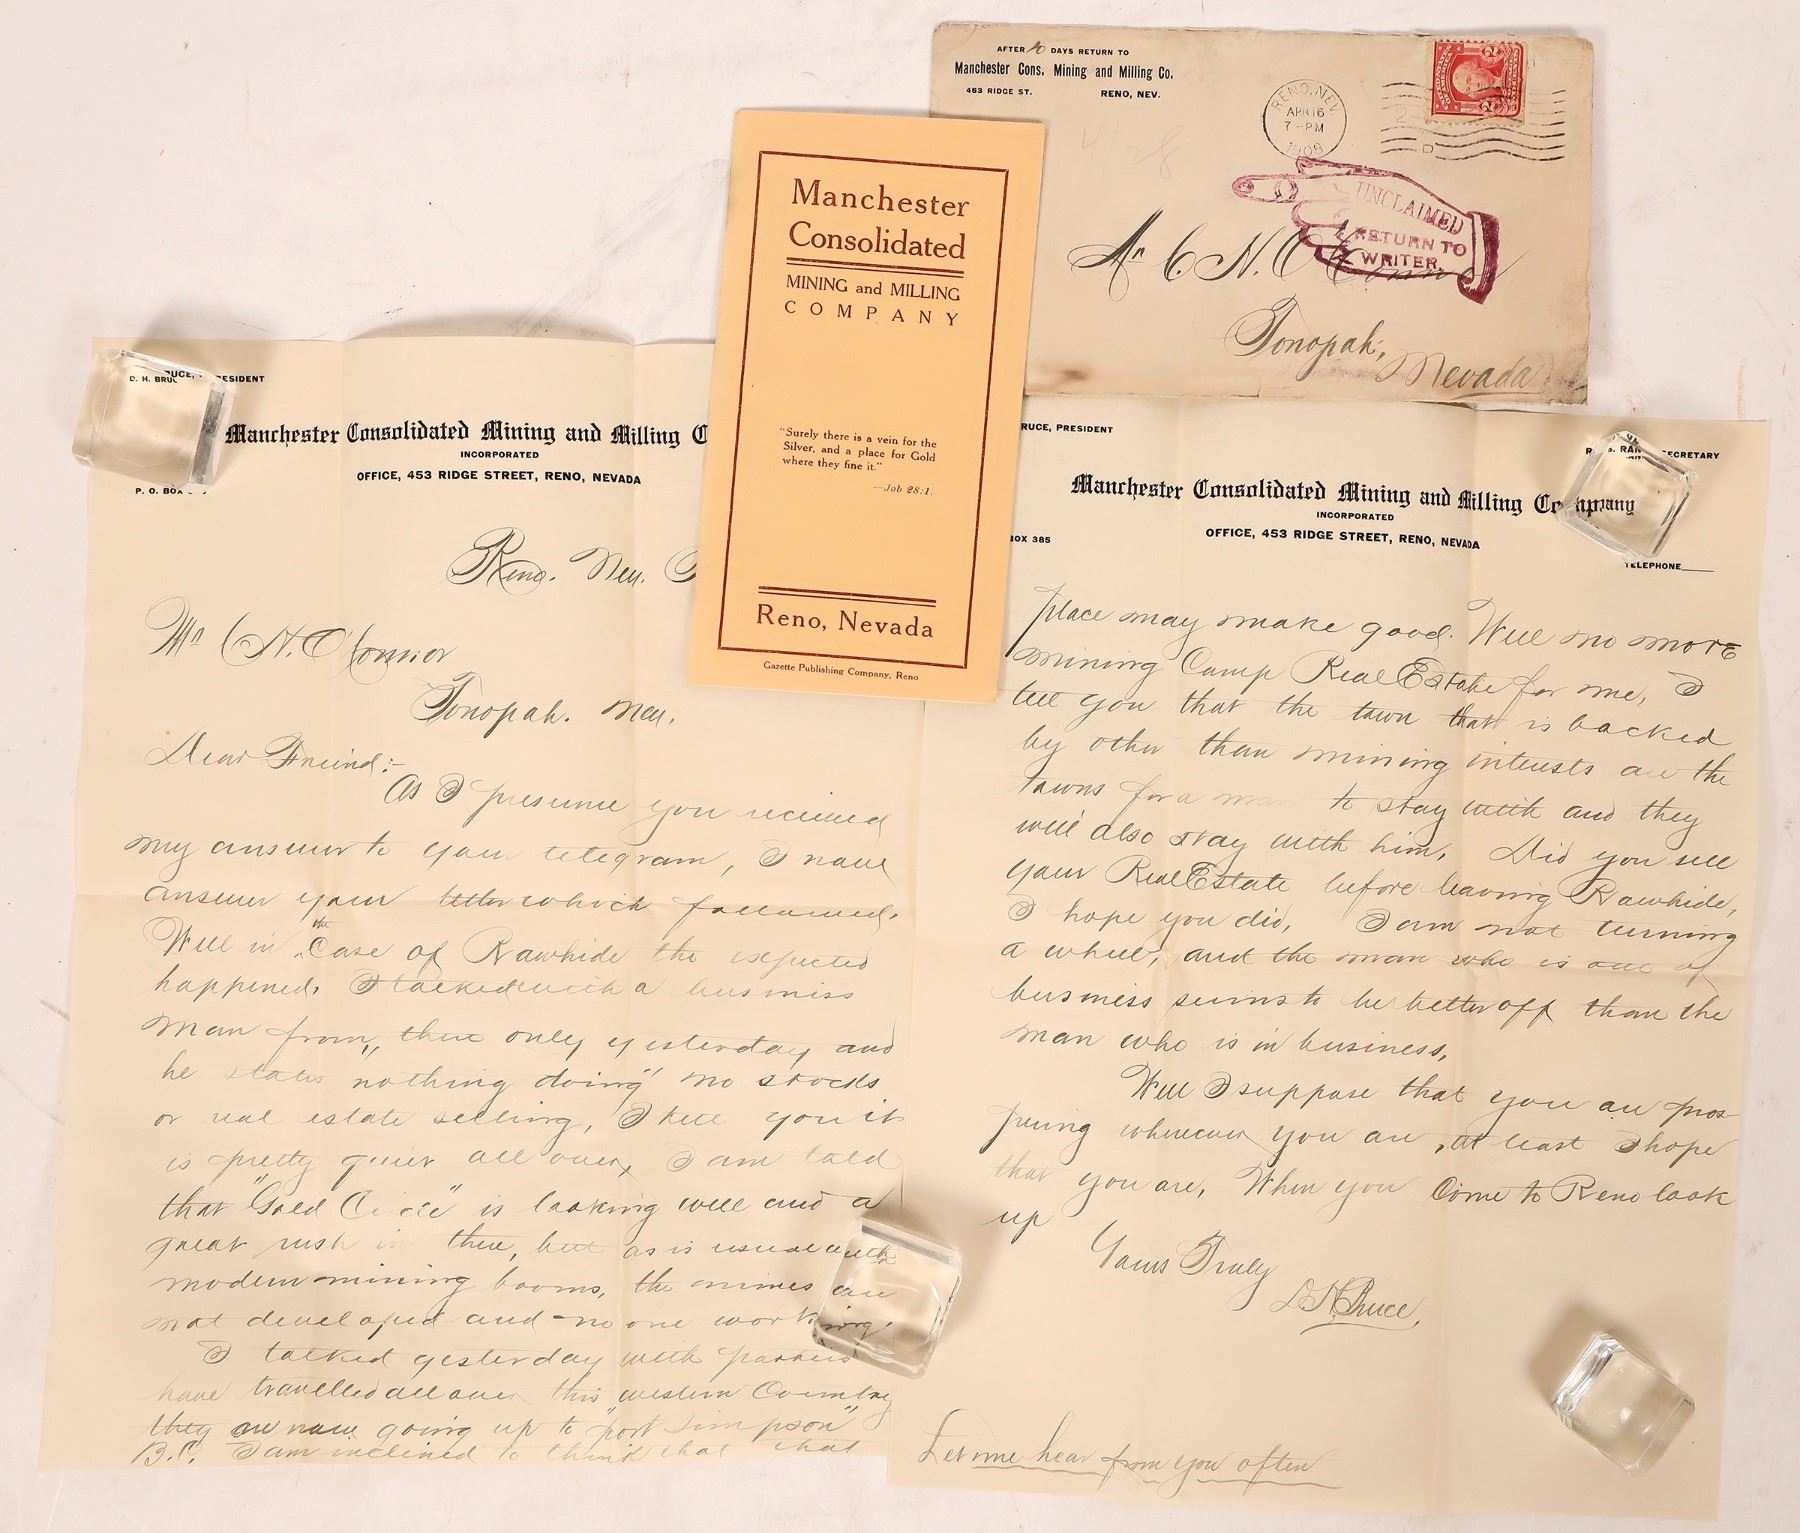 AFTER 10 DAYS RETURN TO
Manchester Cons. Mining and Milling Co.
453 RIDGE ST. RENO, NEV.
RENO, NEV.
APR 16
7-PM
1908
D
4/28
UNCLAIMED
RETURN TO
WRITER
Mr C N. O'Connor
Tonopah,
Nevada
Manchester
Consolidated
MINING and MILLING
COMPANY
"Surely there is a vein for the
Silver, and a place for Gold
where they fine it."
—Job 28:1.
Reno, Nevada
Gazette Publishing Company, Reno
D. H. BRUCE, PRESIDENT
Manchester Consolidated Mining and Milling C
INCORPORATED
OFFICE, 453 RIDGE STREET, RENO, NEVADA
P. O. BOX
Reno. Nev.
Mr C N. O'Connor
Tonopah. Nev.
Dear Friend:-
As I presume you received
my answer to your telegram, I now
answer your letter which followed.
Well in the Case of Rawhide the expected
happened. I talked with a business
man from there only yesterday and
he states "nothing doing" no stocks
or real estate selling, I tell you it
is pretty quiet all over, I am told
that "Gold Circle" is looking well and a
great rush in there, but as is usual with
modern mining booms, the mines are
not developed and no one working.
I talked yesterday with parties
have travelled all over this western Country
they are now going up to "Port Simpson"
B.C. I am inclined to think that that
RUCE, PRESIDENT
SECRETARY
Manchester Consolidated Mining and Milling Company
INCORPORATED
OFFICE, 453 RIDGE STREET, RENO, NEVADA
BOX 385
TELEPHONE
place may make good. Well no more
mining Camp Real Estate for me, I
tell you that the town that is backed
by other than mining interests are the
towns for a man to stay with and they
will also stay with him. Did you sell
your Real Estate before leaving Rawhide,
I hope you did, I am not turning
a wheel, and the man who is out of
business seems to be better off than the
man who is in business.
Well I suppose that you are pros-
pering wherever you are, at least I hope
that you are. When you Come to Reno look
up
Yours Truly
D H Bruce,
Let me hear from you often